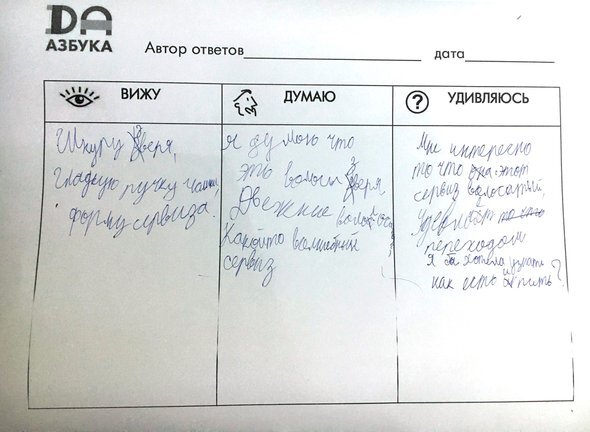 DA
АЗБУКА
Автор ответов
дата
ВИЖУ
ДУМАЮ
?
УДИВЛЯЮСЬ
Шкуру зверя,
гладкую ручку чашки,
форму сервиза.
я думою что
это волосы зверя.
Какойто волшебный
сервиз
Мне интересно
то что этот
сервиз волосатый
переходом
я бы хотела узнать
как есть и пить?